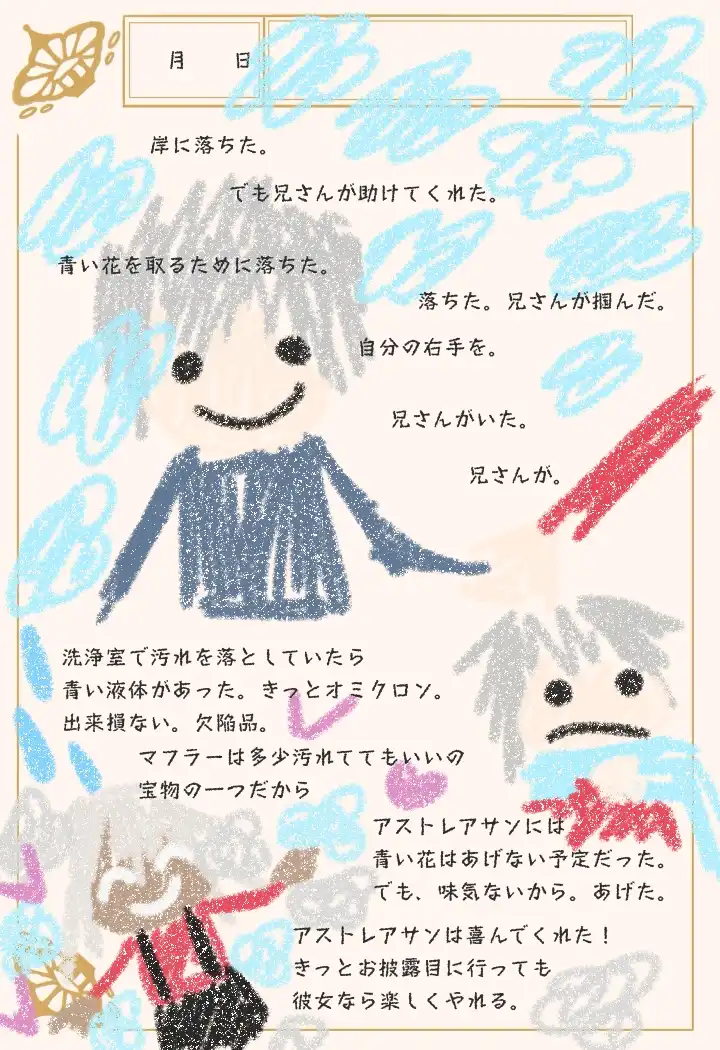 月 日
岸に落ちた。
でも兄さんが助けてくれた。
青い花を取るために落ちた。
落ちた。兄さんが掴んだ。
自分の右手を。
兄さんがいた。
兄さんが。
洗浄室で汚れを落としていたら
青い液体があった。きっとオミクロン。
出来損ない。欠陥品。
マフラーは多少汚れててもいいの
宝物の一つだから
アストレアサンには
青い花はあげない予定だった。
でも、味気ないから。あげた。
アストレアサンは喜んでくれた！
きっとお披露目に行っても
彼女なら楽しくやれる。